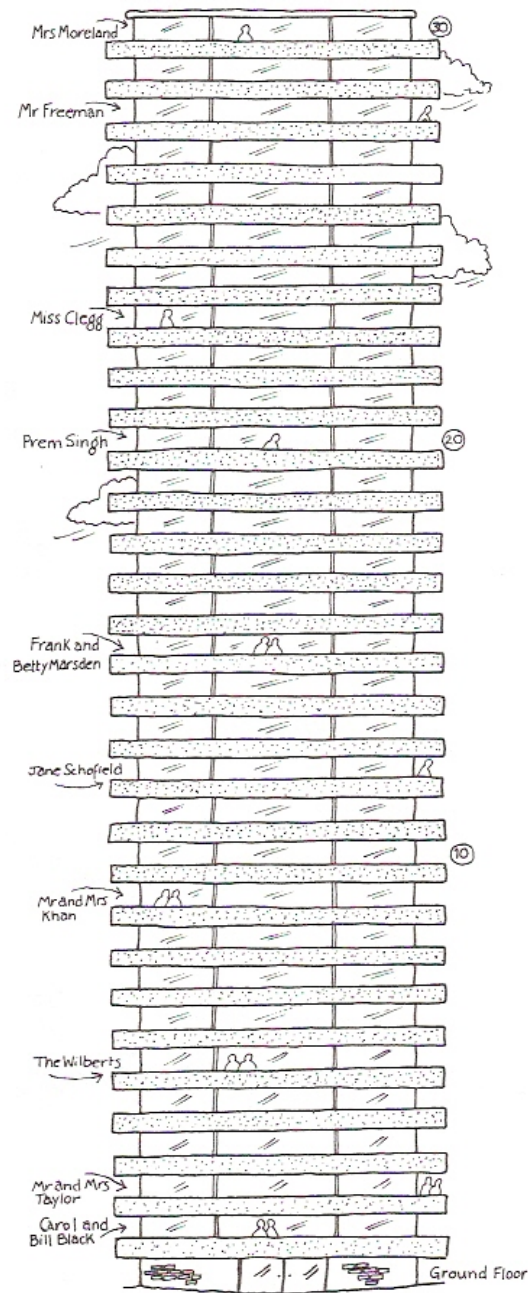 Mrs Moreland
30
Mr Freeman
Miss Clegg
Prem Singh
20
Frank and
Betty Marsden
Jane Schofield
10
Mr and Mrs
Khan
The Wilberts
Mr and Mrs
Taylor
Carol and
Bill Black
Ground Floor